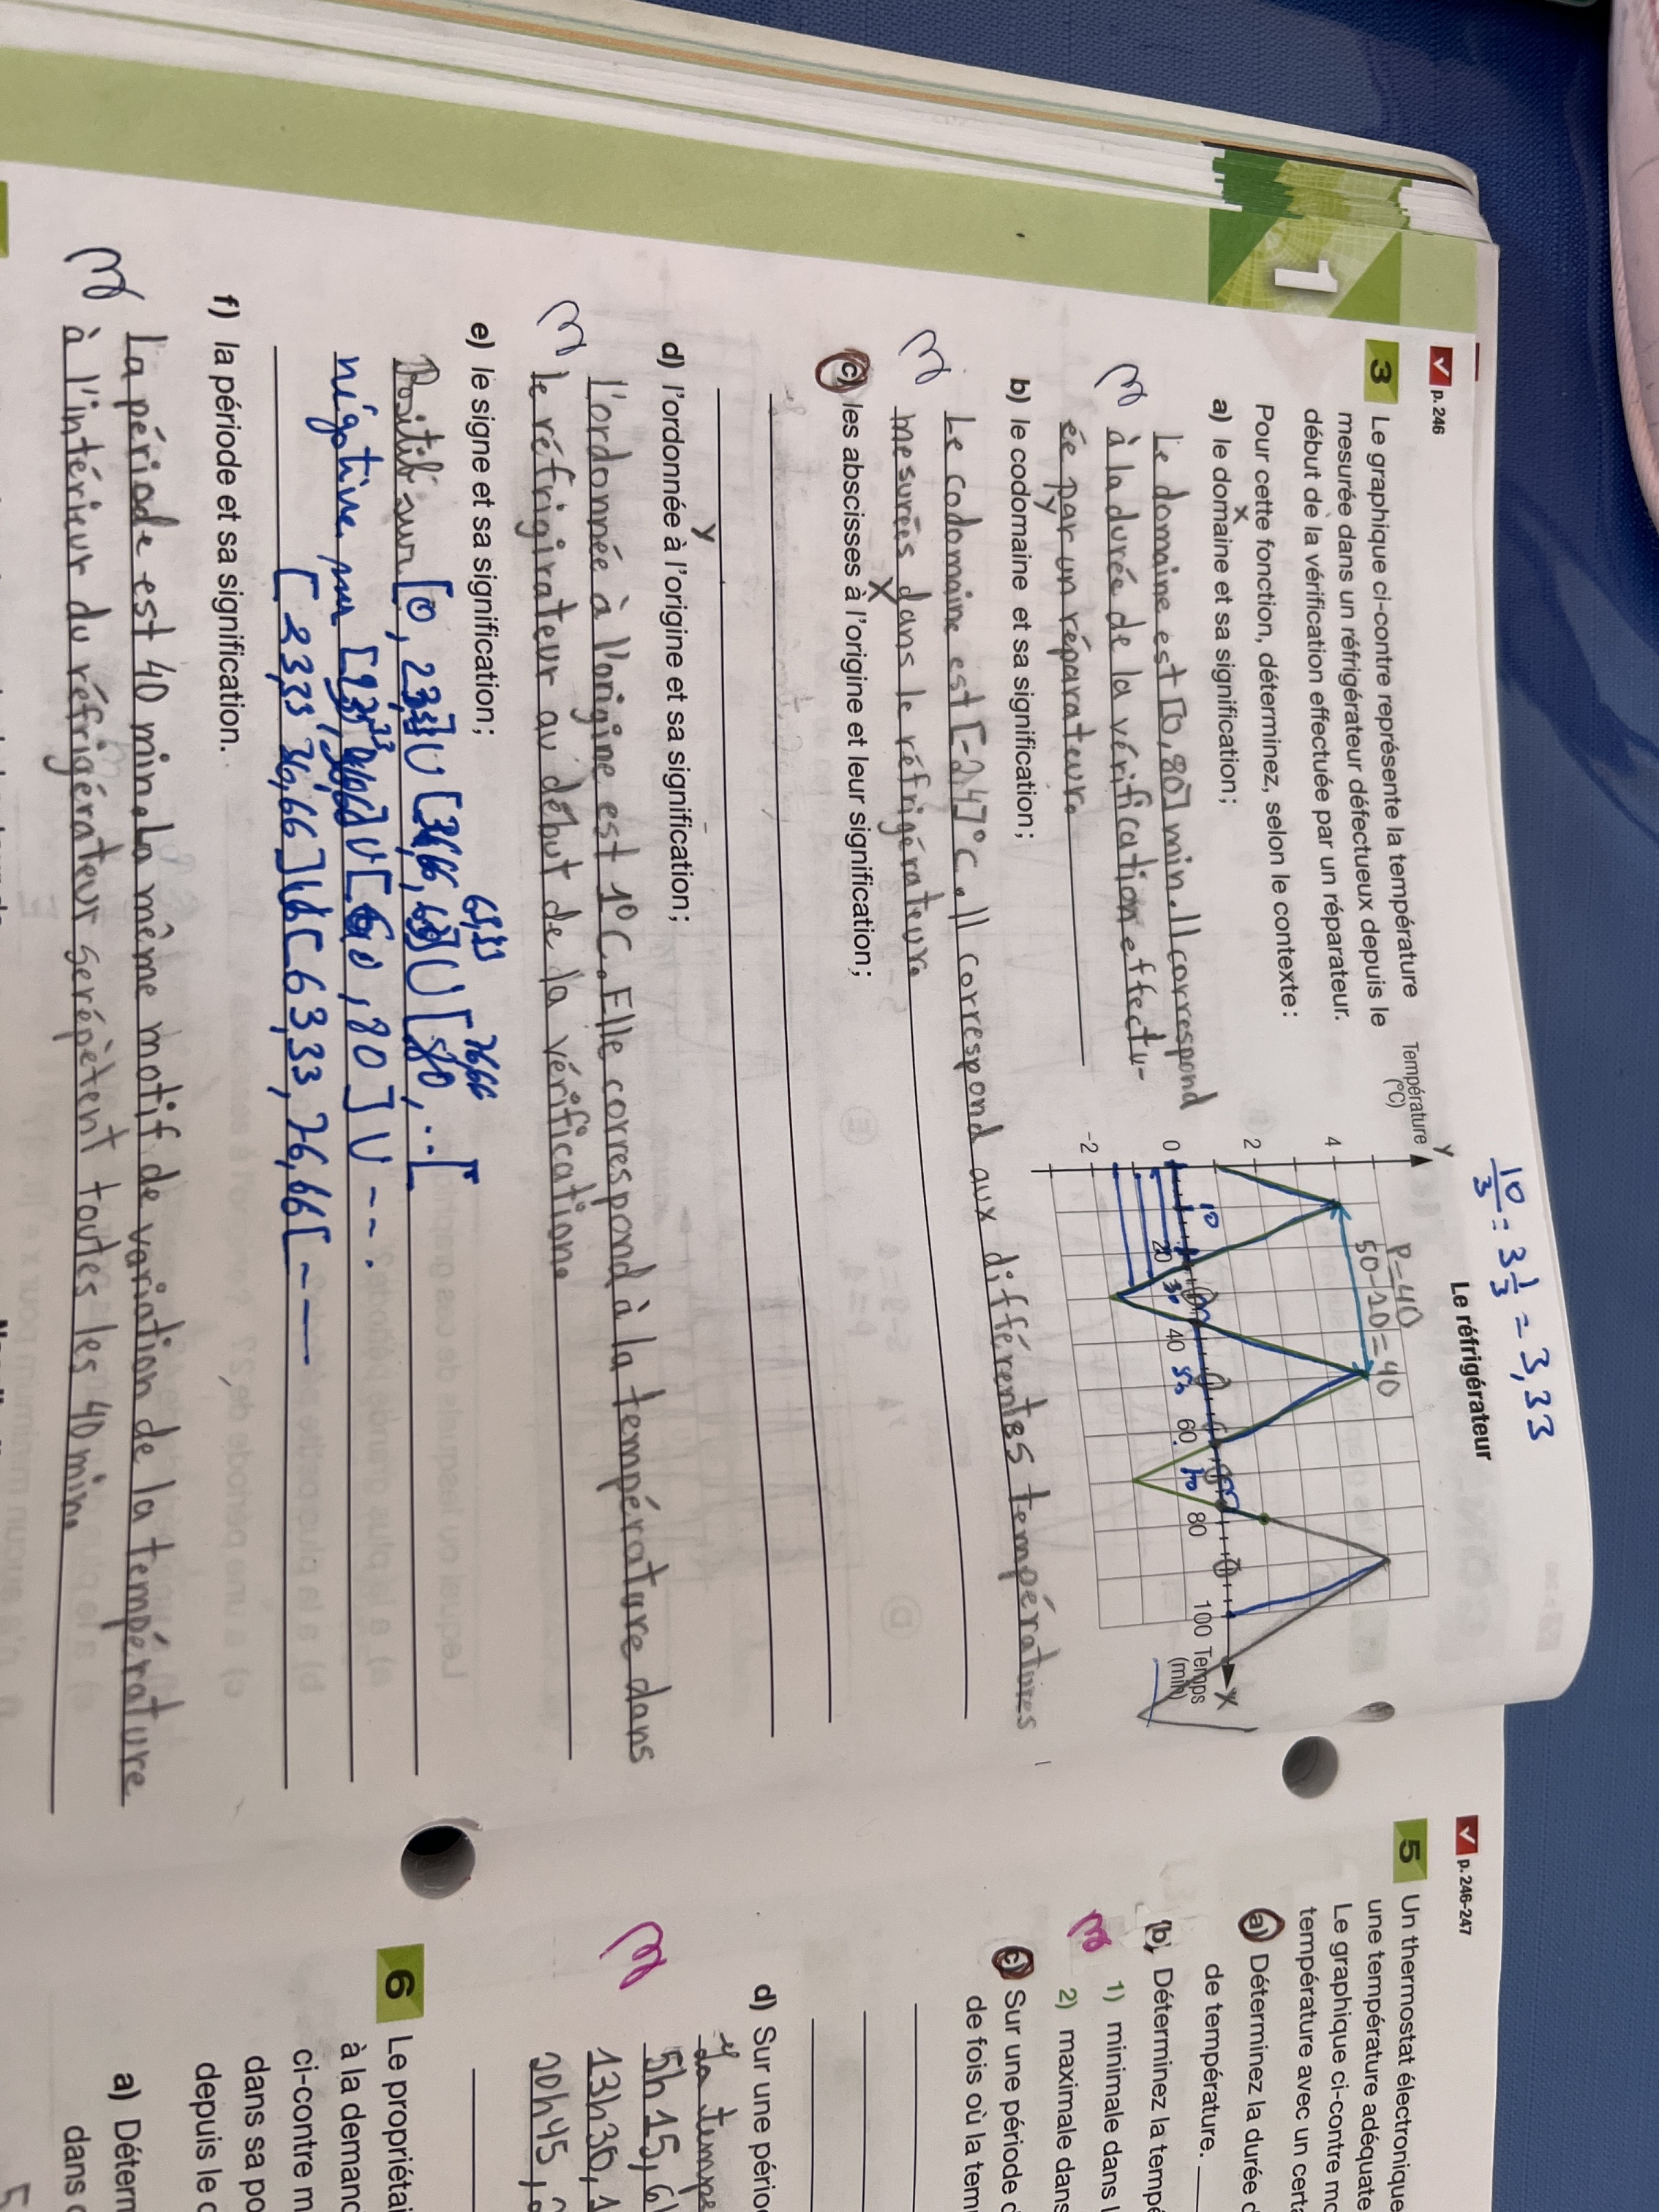 1
p. 246
3 Le graphique ci-contre représente la température
mesurée dans un réfrigérateur défectueux depuis le
début de la vérification effectuée par un réparateur.
Pour cette fonction, déterminez, selon le contexte :
a) le domaine et sa signification;
x
Le domaine est [0,80] min. Il correspond
à la durée de la vérification effectu-
ée par un réparateur.
y
b) le codomaine et sa signification;
Le codomaine est [-2,4] °C. Il correspond aux différentes températures
mesurées dans le réfrigérateur.
x
c) les abscisses à l'origine et leur signification;
y
d) l'ordonnée à l'origine et sa signification;
L'ordonnée à l'origine est 1°C. Elle correspond à la température dans
le réfrigirateur au début de la vérification.
e) le signe et sa signification;
63,33 76,66
Positif sur [0,
négative sur
, 80] U - - .
[23,33 36,66] U [63,33, 76,66[ - —
f) la période et sa signification.
La période est 40 min. La même motif de variation de la température
à l'intérieur du réfrigérateur serépètent toutes les 40 min.
10/3 = 3 1/3 = 3,33
Le réfrigérateur
P=40
50-10=40
Température
(°C)
y
4
2
0
-2
10
20
30
40
50
60
70
80
100
Temps
(min)
x
p. 246-247
5 Un thermostat électronique
une température adéquate
Le graphique ci-contre mo
température avec un certa
a) Déterminez la durée d
de température.
b) Déterminez la tempé
1) minimale dans l
2) maximale dans
c) Sur une période d
de fois où la tem
d) Sur une pério
5h15, 6
13h30, 1
20h45,
6 Le propriétai
à la demand
ci-contre m
dans sa po
depuis le c
a) Déterm
dans
5